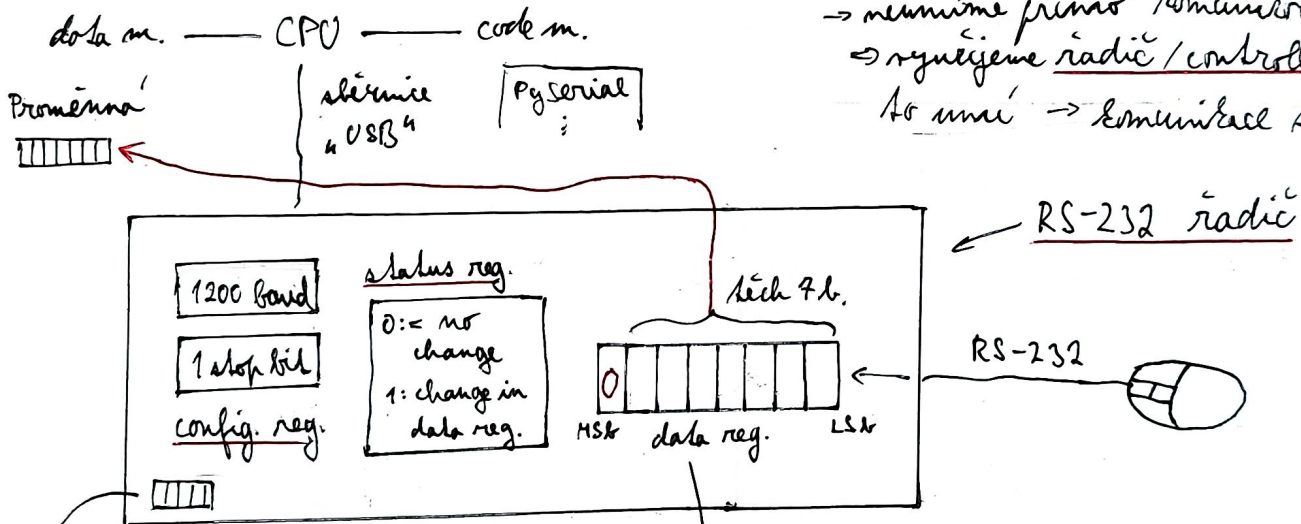 data m. — CPU — code m.
→ neumíme přímo komuniko
⇒ využijeme řadič / controll
to umí → komunikace s
Proměnná
sběrnice
"USB"
PySerial
⋮
RS-232 řadič
1200 baud
1 stop bit
config. reg.
status reg.
0:= no
change
1: change in
data reg.
těch 7 b.
0
MSb data reg. LSb
RS-232